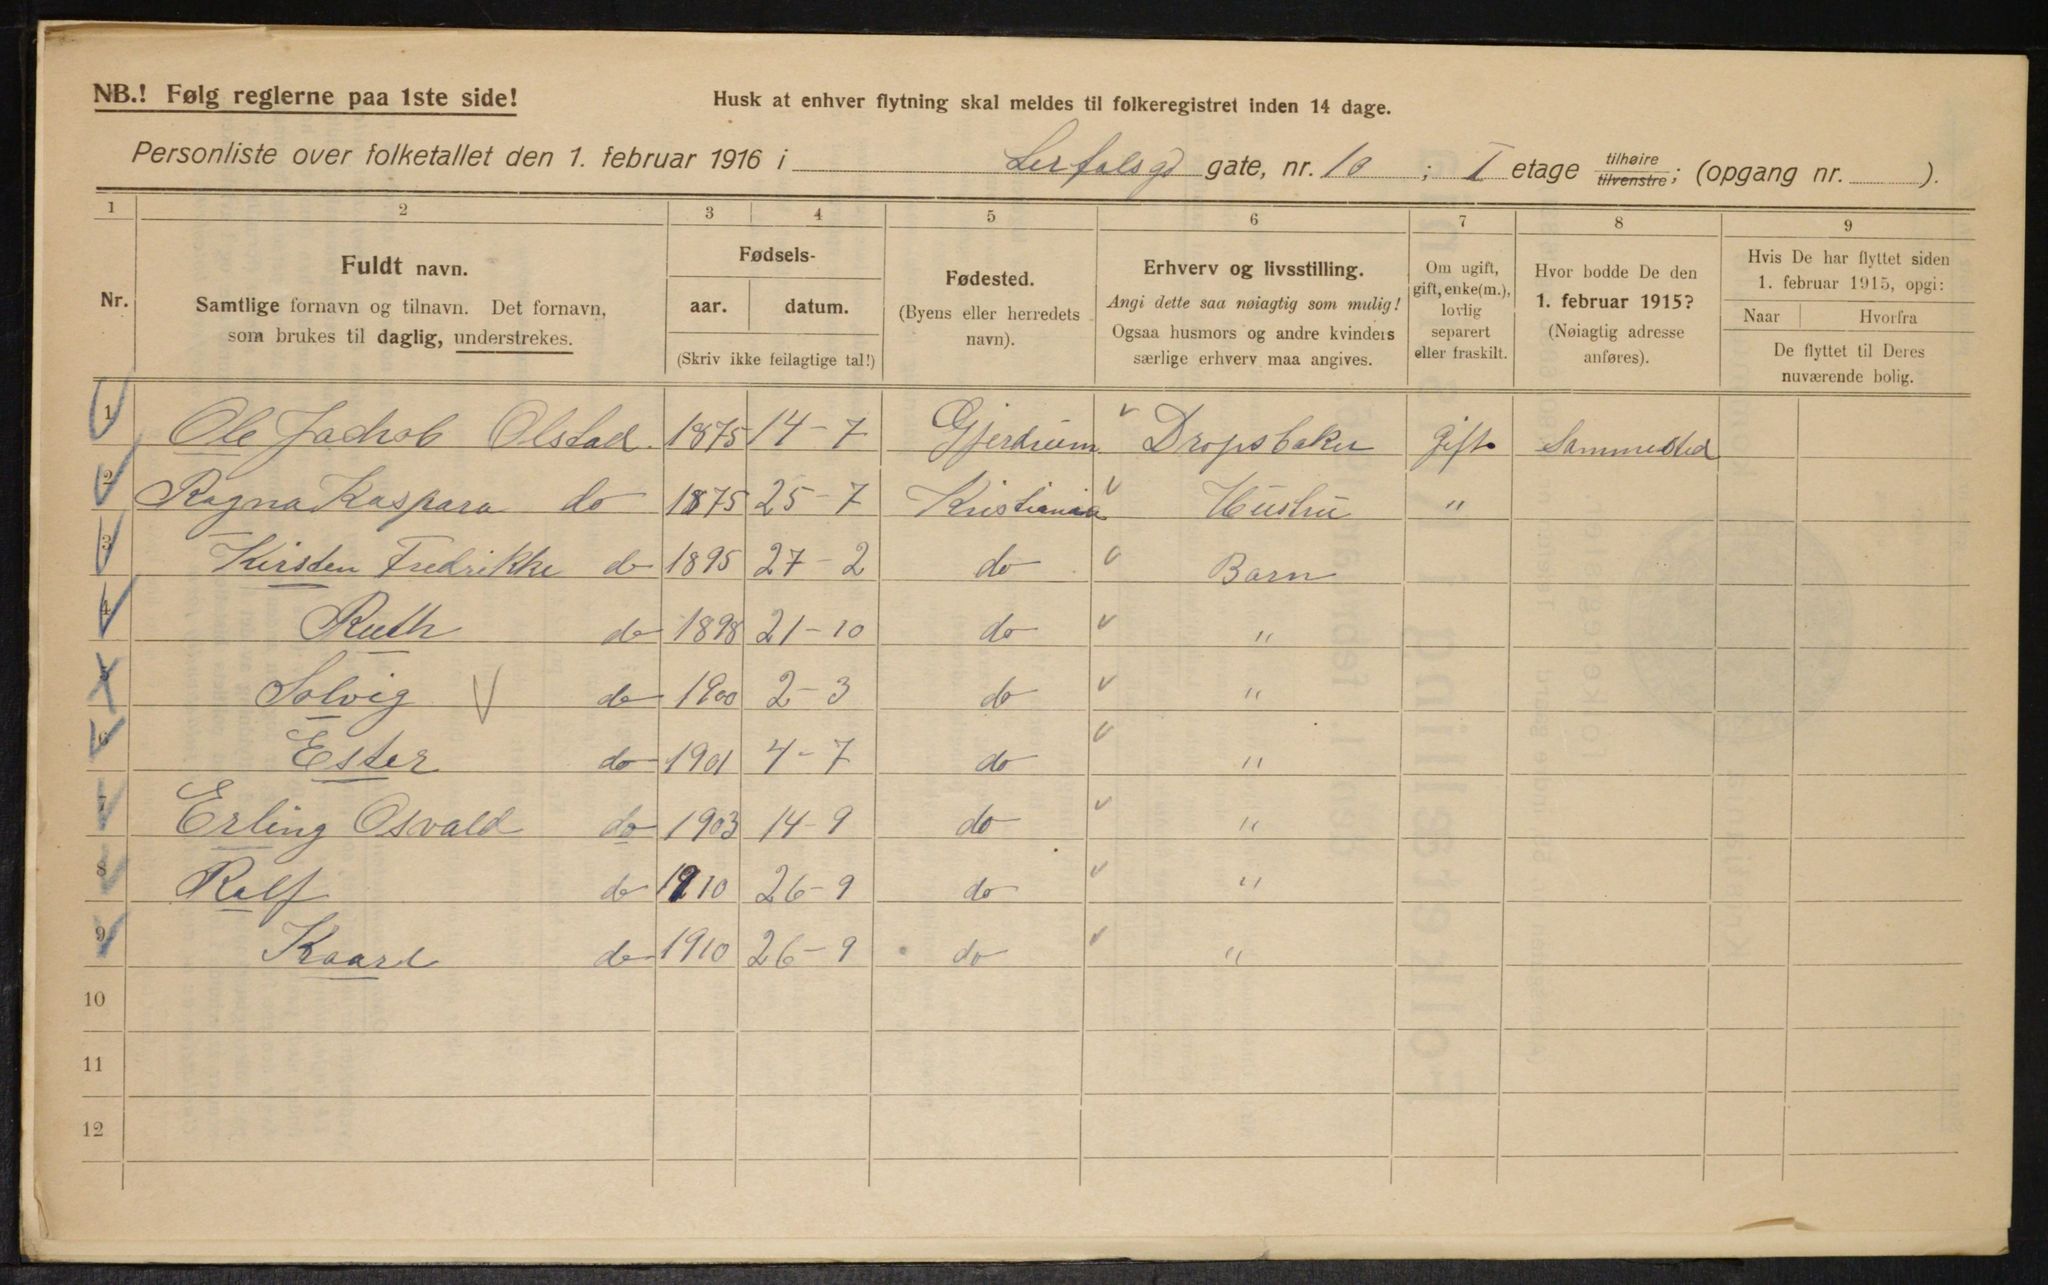 NB.! Følg reglerne paa 1ste side!
Husk at enhver flytning skal meldes til folkeregistret inden 14 dage.
Personliste over folketallet den 1. februar 1916 i Lerfalsgt gate, nr. 10 ; I etage tilhøire tilvenstre; (opgang nr. ).
1 2 3 4 5 6 7 8 9
Nr.
Fuldt navn.
Samtlige fornavn og tilnavn. Det fornavn,
som brukes til daglig, understrekes.
Fødsels-
aar. datum.
(Skriv ikke feilagtige tal!)
Fødested.
(Byens eller herredets
navn).
Erhverv og livsstilling.
Angi dette saa nøiagtig som mulig!
Ogsaa husmors og andre kvinders
særlige erhverv maa angives.
Om ugift,
gift, enke(m.),
lovlig
separert
eller fraskilt.
Hvor bodde De den
1. februar 1915?
(Nøiagtig adresse
anføres).
Hvis De har flyttet siden
1. februar 1915, opgi:
Naar Hvorfra
De flyttet til Deres
nuværende bolig.
1 Ole Jachob Olstad 1875 14-7 Gjerdrum Dropsbaker gift Sammested
2 Ragna Kaspara do 1875 25-7 Kristiania Hustru "
3 Kirsten Fredrikke do 1895 27-2 do Barn
4 Ruth do 1898 21-10 do "
5 Solvig do 1900 2-3 do "
6 Ester do 1901 4-7 do "
7 Erling Osvald do 1903 14-9 do "
8 Ralf do 1910 26-9 do "
9 Kaare do 1910 26-9 do "
10
11
12